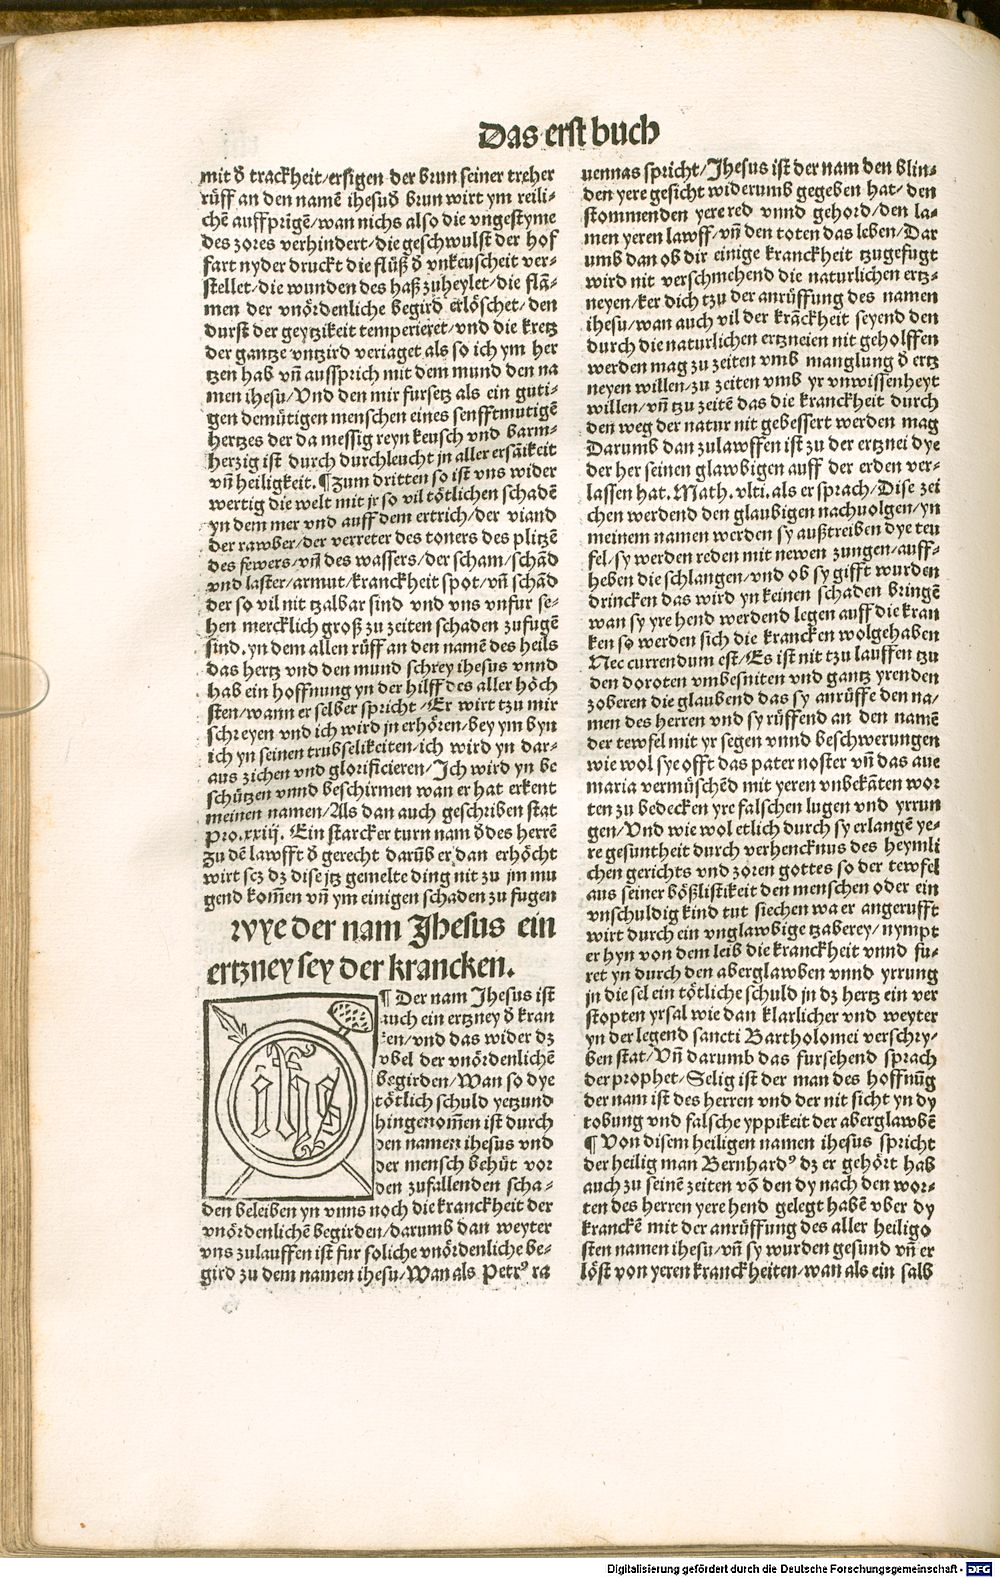 Das erst buch
mit đ trackheit/ersigen der brun seiner treher
rüff an den namē ihesu đ brun wirt ym reili-
chē auffprigē/wan nichs also die vngestyme
des zores verhindert/die geschwulst der hof
fart nyder druckt die flüß đ vnkeuscheit ver-
stellet/die wunden des haß zuheylet/die flā-
men der vnördenliche begird erlöschet/den
durst der geytzikeit temperieret/vnd die kretz
der gantze vntzird veriaget als so ich ym her
tzen hab vñ aussprich mit dem mund den na
men ihesu/Vnd den mir fursetz als ein guti-
gen demütigen menschen eines senfftmutigē
hertzes der da messig reyn keusch vnd barm-
herzig ist durch durchleucht jn aller ersāikeit
vñ heiligkeit.¶Zum dritten so ist vns wider
wertig die welt mit jr so vil tötlichen schadē
yn dem mer vnd auff dem ertrich/der viand
der rawber/der verreter des toners des plitzē
des fewers/vñ des wassers/der scham/schād
vnd laster/armut/kranckheit spot/vñ schād
der so vil nit tzalbar sind vnd vns vnfur se-
hen mercklich groß zu zeiten schaden zufugē
sind.yn dem allen rüff an den namē des heils
das hertz vnd den mund schrey ihesus vnnd
hab ein hoffnung yn der hilff des aller höch
sten/wann er selber spricht/Er wirt tzu mir
schreyen vnd ich wird jn erhören/bey ym byn
ich yn seinen trubselikeiten/ich wird yn dar-
aus zichen vnd glorificieren/Ich wird yn be
schützen vnnd beschirmen wan er hat erkent
meinen namen/Als dan auch geschriben stat
Pro.xxiij. Ein starcker turn nam đ des herrē
zu dē lawfft đ gerecht darūb er dan erhöcht
wirt scz dz dise jtz gemelte ding nit zu jm mu
gend kom̄en vñ ym einigen schaden zu fugen
wye der nam Jhesus ein
ertzney sey der krancken.
¶ Der nam Jhesus ist
auch ein ertzney đ kran
cken/vnd das wider dz
vbel der vnördenlichē
begirden/Wan so dye
tötlich schuld yetzund
hingenom̄en ist durch
den namen ihesus vnd
der mensch behüt vor
den zufallenden scha-
ihs
den beleiben yn vnns noch die kranckheit der
vnördenlichē begirden/darumb dan weyter
vns zulauffen ist fur soliche vnördenliche be-
gird zu dem namen ihesu/Wan als Petrꝰ ra
uennas spricht/Jhesus ist der nam den blin-
den yere gesicht widerumb gegeben hat/den
stommenden yere red vnnd gehord/den la-
men yeren lawff/vñ den toten das leben/Dar
umb dan ob dir einige kranckheit tzugefugt
wird nit verschmehend die naturlichen ertz-
neyen/ker dich tzu der anrüffung des namen
ihesu/wan auch vil der krāckheit seyend den
durch die naturlichen ertzneien nit geholffen
werden mag zu zeiten vmb manglung đ ertz
neyen willen/zu zeiten vmb yr vnwissenheyt
willen/vñ tzu zeitē das die kranckheit durch
den weg der natur nit gebessert werden mag
Darumb dan zulawffen ist zu der ertznei dye
der her seinen glawbigen auff der erden ver-
lassen hat.Math.vlti.als er sprach/Dise zei
chen werdend den glaubigen nachuolgen/yn
meinem namen werden sy außtreiben dye teu
fel/sy werden reden mit newen zungen/auff-
heben die schlangen/vnd ob sy gifft wurden
drincken das wird yn keinen schaden bringē
wan sy yre hend werdend legen auff die kran
ken so werden sich die krancken wolgehaben
Nec currendum est/Es ist nit tzu lauffen tzu
den doroten vmbesniten vnd gantz yrenden
zoberen die glaubend das sy anrüffe den na-
men des herren vnd sy rüffend an den namē
der tewfel mit yr segen vnnd beschwerungen
wie wol sye offt das pater noster vñ das aue
maria vermüschēd mit yeren vnbekāten wor
ten zu bedecken yre falschen lugen vnd yrrun
gen/Vnd wie wol etlich durch sy erlangē ye-
re gesuntheit durch verhencknus des heymli
chen gerichts vnd zoren gottes so der tewfel
aus seiner bößlistikeit den menschen oder ein
vnschuldig kind tut siechen wa er angerufft
wirt durch ein vnglawbige tzaberey/nympt
er hyn von dem leib die kranckheit vnnd fu-
ret yn durch den aberglawben vnnd yrrung
jn die sel ein tötliche schuld jn dz hertz ein ver
stopten yrsal wie dan klarlicher vnd weyter
yn der legend sancti Bartholomei verschry-
ben stat/Vñ darumb das fursehend sprach
der prophet/Selig ist der man des hoffnūg
der nam ist des herren vnd der nit sicht yn dy
tobung vnd falsche yppikeit der aberglawbē
¶ Von disem heiligen namen ihesus spricht
der heilig man Bernhardꝰ dz er gehört hab
auch zu seinē zeiten vō den dy nach den wor-
ten des herren yere hend gelegt habē vber dy
kranckē mit der anrüffung des aller heiligo
sten namen ihesu/vñ sy wurden gesund vñ er
löst von yeren kranckheiten/wan als ein salb
Digitalisierung gefördert durch die Deutsche Forschungsgemeinschaft - DFG